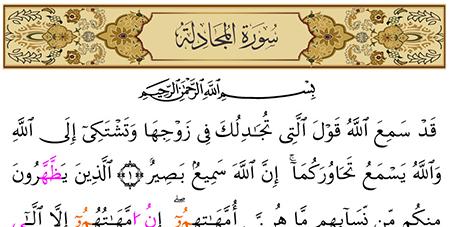 سُورَةُ المُجَادلَة
بِسْمِ اللَّهِ الرَّحْمَٰنِ الرَّحِيمِ
قَدْ سَمِعَ اللَّهُ قَوْلَ الَّتِي تُجَٰدِلُكَ فِي زَوْجِهَا وَتَشْتَكِيٓ إِلَى اللَّهِ
وَاللَّهُ يَسْمَعُ تَحَاوُرَكُمَآۚ إِنَّ اللَّهَ سَمِيعُۢ بَصِيرٌ ﴿١﴾ الَّذِينَ يَظَّهَّرُونَ
مِنكُم مِّن نِّسَآئِهِم مَّا هُنَّ أُمَّهَٰتِهِمُۥٓۖ إِنُ امَّهَٰتُهُمُۥٓ إِلَّا